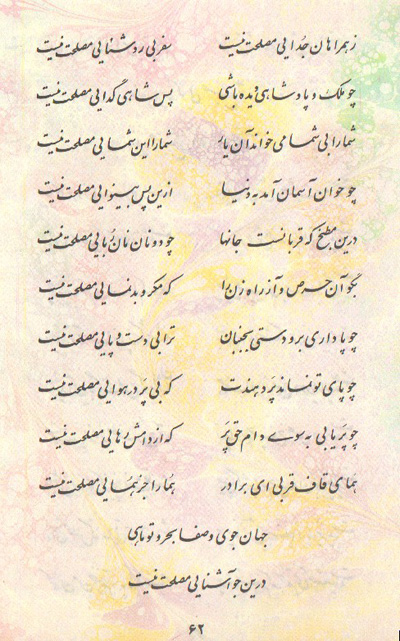 ز همراهان جدایی مصلحت نیست سفر بی روشنایی مصلحت نیست
چو ملک و پادشاهی دیده باشی پس شاهی گدایی مصلحت نیست
شما را بی شما می خواند آن یار شما را این شمایی مصلحت نیست
چو خوان آسمان آمد به دنیا ازین پس بینوایی مصلحت نیست
درین مطبخ که قربانست جانها چو دونان نان ربایی مصلحت نیست
بگو آن حرص و آز راه زن را که مکر و بدنمایی مصلحت نیست
چو پا داری برو دستی بجنبان ترا بی دست و پایی مصلحت نیست
چو پای تو نماند پر دهندت که بی پر در هوایی مصلحت نیست
چو پر یابی به سوی دام حق پر که از دامش رهایی مصلحت نیست
همای قاف قربی ای برادر هما را جز همایی مصلحت نیست
جهان جوی و صفا بحر و تو ماهی
درین جو آشنایی مصلحت نیست
۶۲